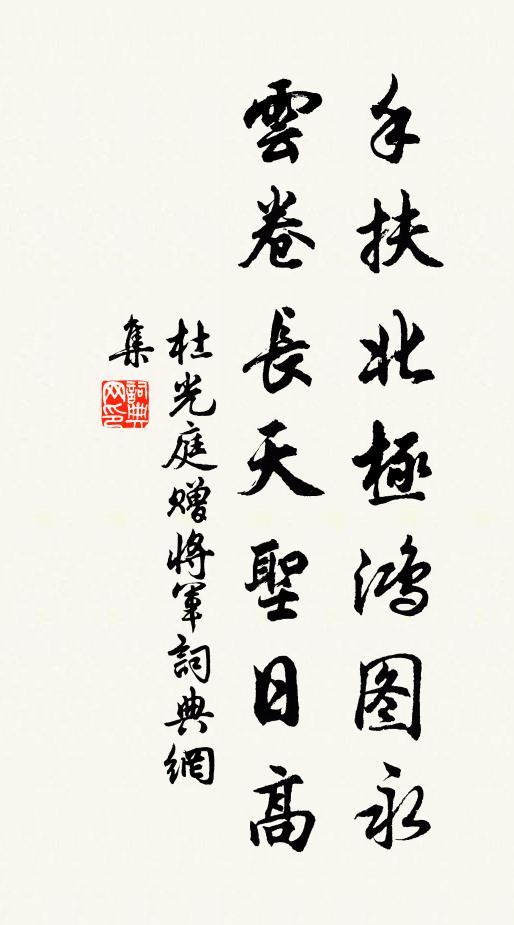 手扶北極鸿图永
雲卷長天聖日高
杜光庭赠将軍詞典網
集
詞典网印